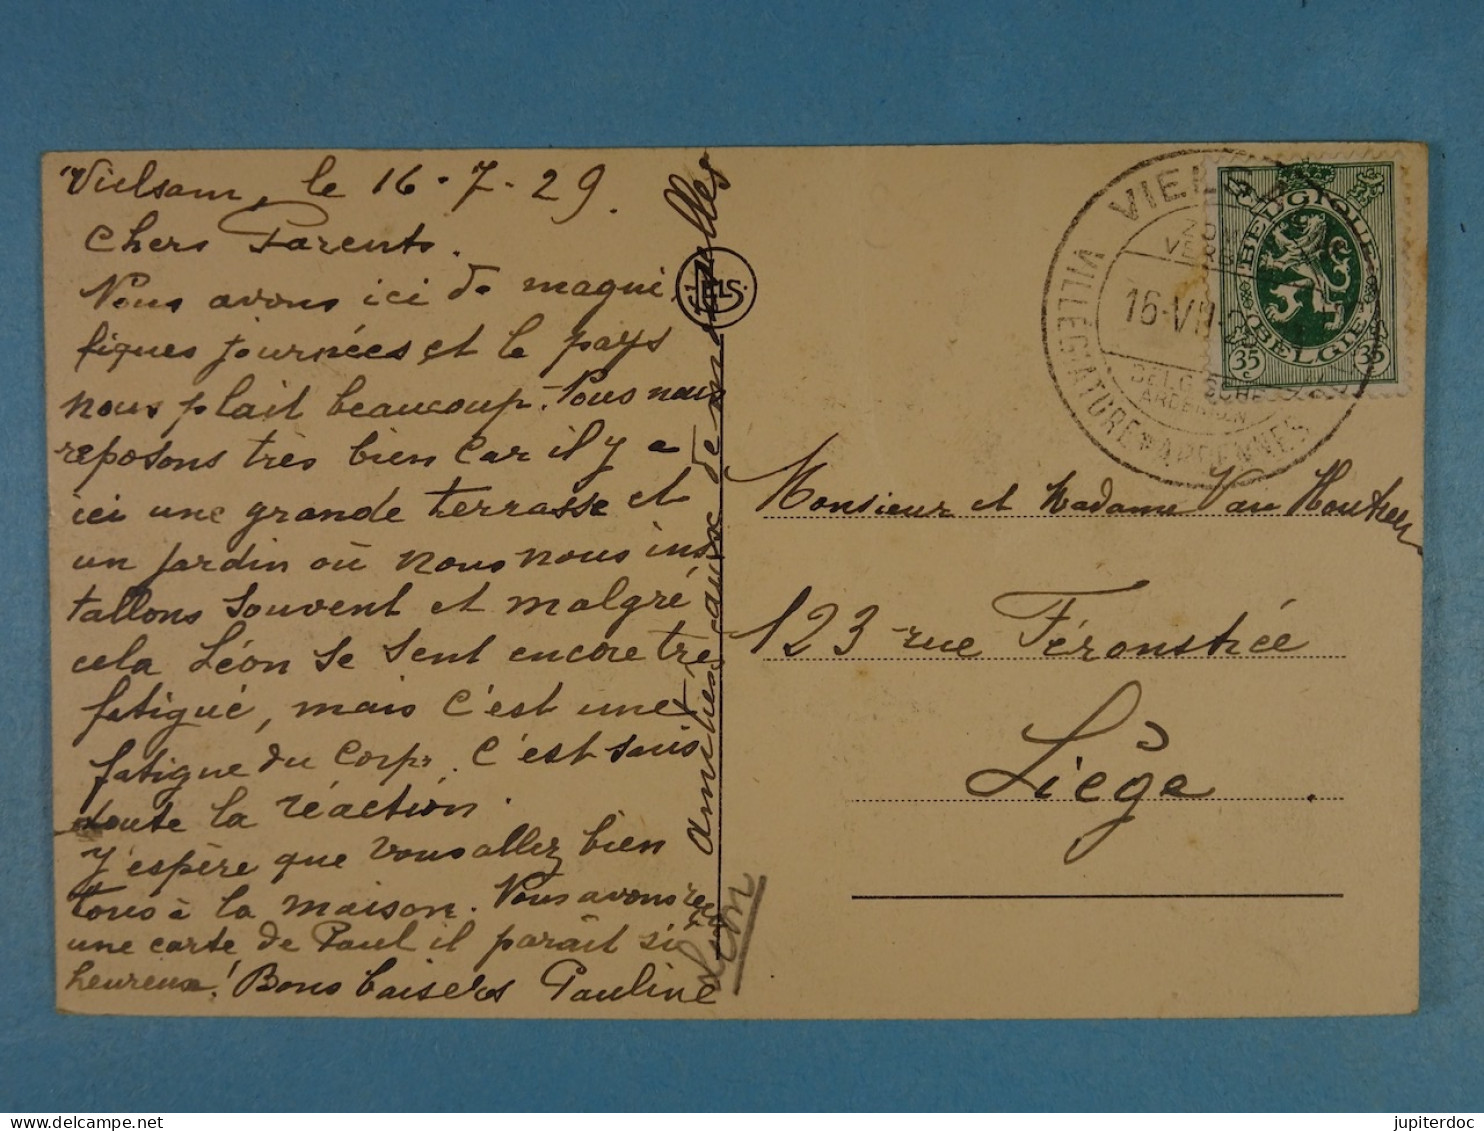 Vielsam, le 16-7-29.
Chers Parents.
Nous avons ici de magni
fiques journées et le pays
nous plait beaucoup. Nous nous
reposons très bien car il y a
ici une grande terrasse et
un jardin où nous nous ins
tallons souvent et malgré
cela Léon se sent encore très
fatigué, mais c'est une
fatigue du corps. C'est sans
doute la réaction.
J'espère que vous allez bien
tous à la maison. Nous avons reçu
une carte de Paul il paraît si
heureux! Bons baisers Pauline
amitiés aux demoiselles
Léon
VIELSALM
VILLEGIATURE * ARDENNES
16-VII-29
BELGISCHE
ARDENNEN
BELGIQUE
BELGIE
35 c
35
Monsieur et Madame Van Houtven
123 rue Féronstrée
Liège.
jupiterdoc